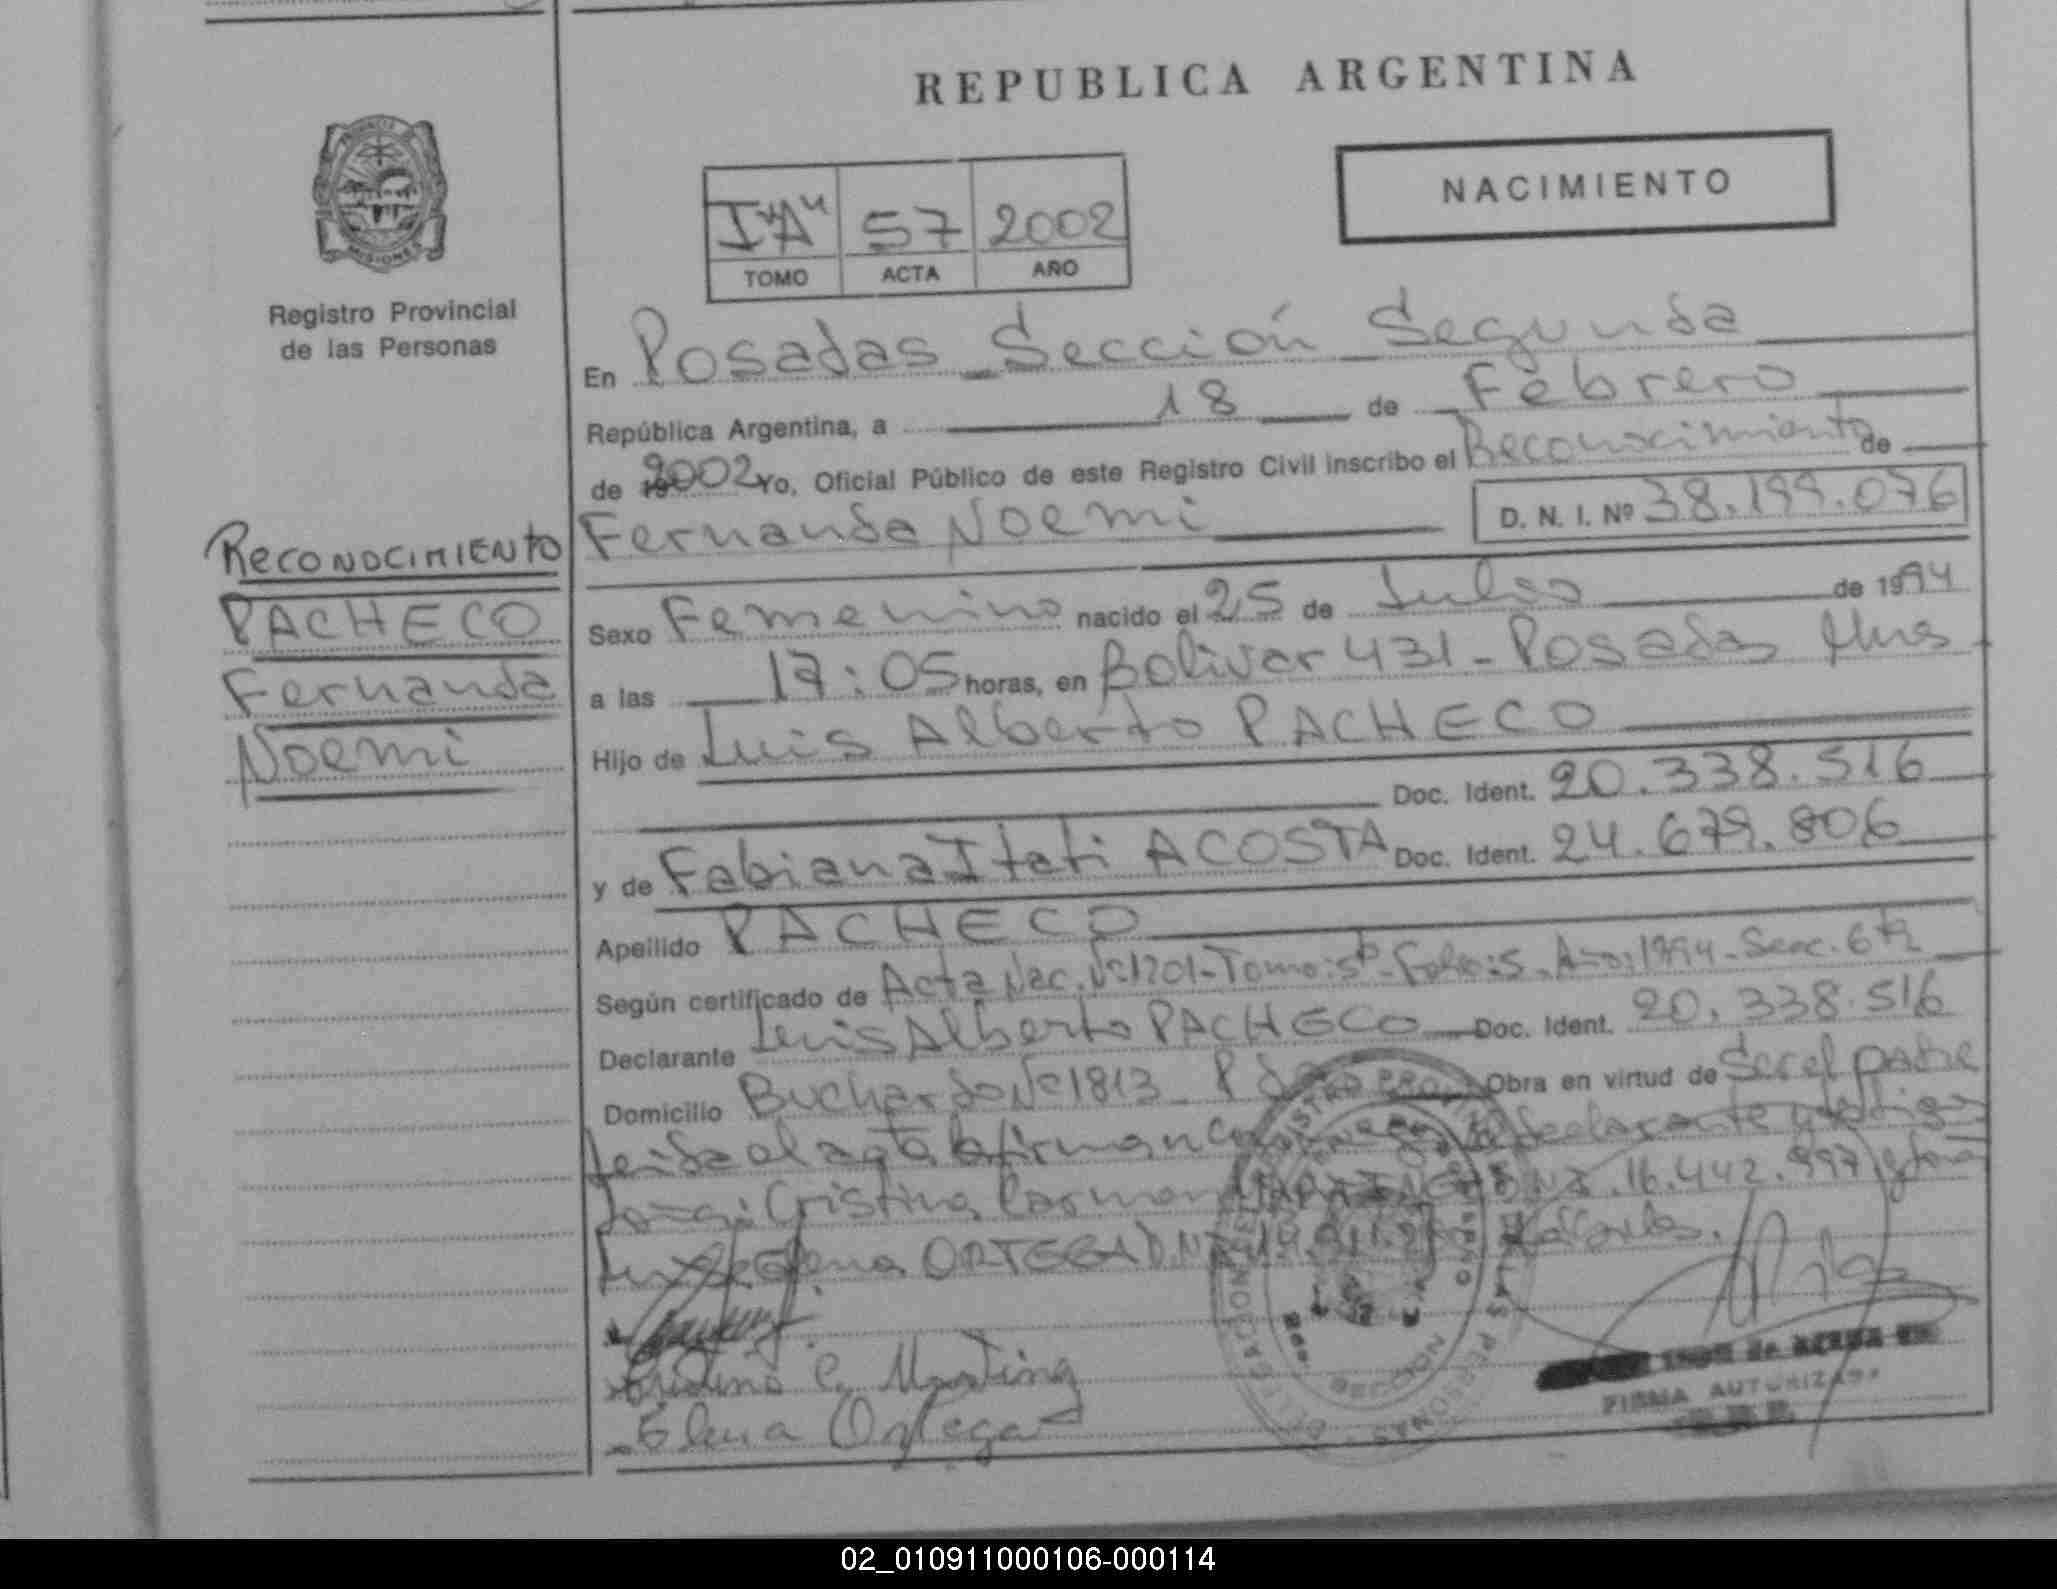 REPUBLICA ARGENTINA
NACIMIENTO
I"A" 57 2002
TOMO ACTA AÑO
PROVINCIA
MISIONES
Registro Provincial
de las Personas
En Posadas Sección Segunda
República Argentina, a 18 de Febrero
de 2002 Yo, Oficial Público de este Registro Civil inscribo el Reconocimiento de
Fernanda Noemi D. N. I. Nº 38.199.076
Reconocimiento
PACHECO
Fernanda
Noemi
Sexo Femenino nacido el 25 de Julio de 1994
a las 17:05 horas, en Bolivar 431 - Posadas Mnes
Hijo de Luis Alberto PACHECO
Doc. Ident. 20.338.516
y de Fabiana Itati ACOSTA Doc. Ident. 24.679.806
Apellido PACHECO
Según certificado de Acta Nac. Nº 1201 - Tomo: - Folio: 5 - Año: 1994 - Secc. 6ta
Declarante Luis Alberto PACHECO Doc. Ident. 20.338.516
Domicilio Buchardo Nº 1813 - Obra en virtud de Ser el padre
Leida el acta la firman declarante y testigos
Cristina Carmen 16.442.997
Elena ORTEGA D.N.I.
Cristina C. Martinez
Elena Ortega
FIRMA AUTORIZADA
02_010911000106-000114